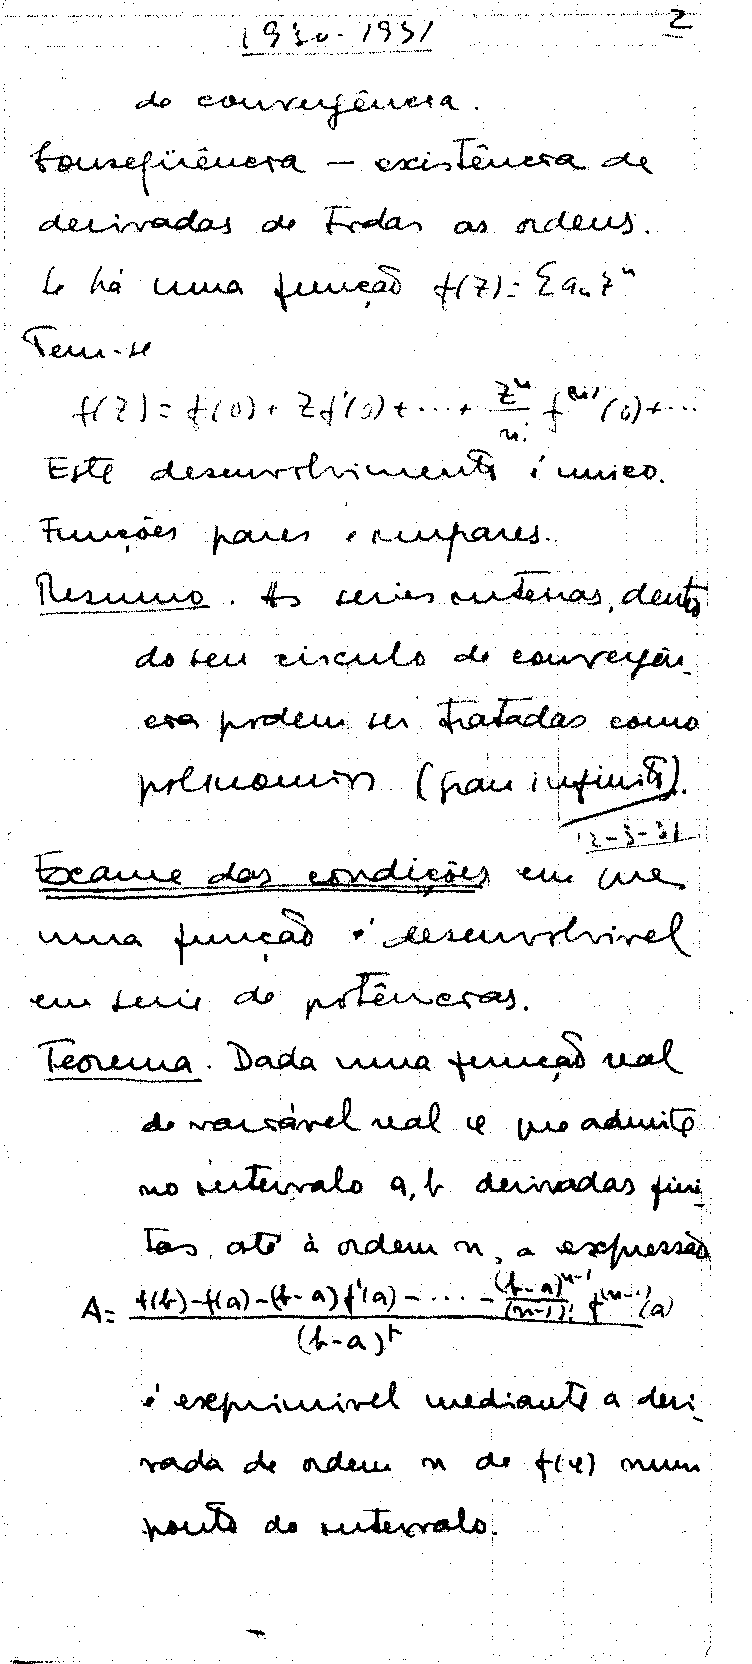 1930-1931
2
de convergência.
Conseqüência — existência de
derivadas de todas as ordens.
Se há uma função f(z) = Σ aₙ zⁿ
Tem-se
f(z) = f(0) + z f'(0) + ... + zⁿ/n! f⁽ⁿ⁾(0) + ...
Este desenvolvimento é unico.
Funções pares e impares.
Resumo. As series inteiras, dentro
do seu circulo de convergên-
cia podem ser tratadas como
polinomios (grau infinito).
12-3-31
Exame das condições em que
uma função é desenvolvivel
em serie de potências.
Teorema. Dada uma função real
de variável real φ que admite
no intervalo a, b derivadas fini-
tas, até à ordem n, a expressão
A = f(b)-f(a)-(b-a)f'(a)- ... -(b-a)ⁿ⁻¹/(n-1)! f⁽ⁿ⁻¹⁾(a)
(b-a)ᵏ
é exprimivel mediante a deri-
vada de ordem n de f(φ) num
ponto do intervalo.